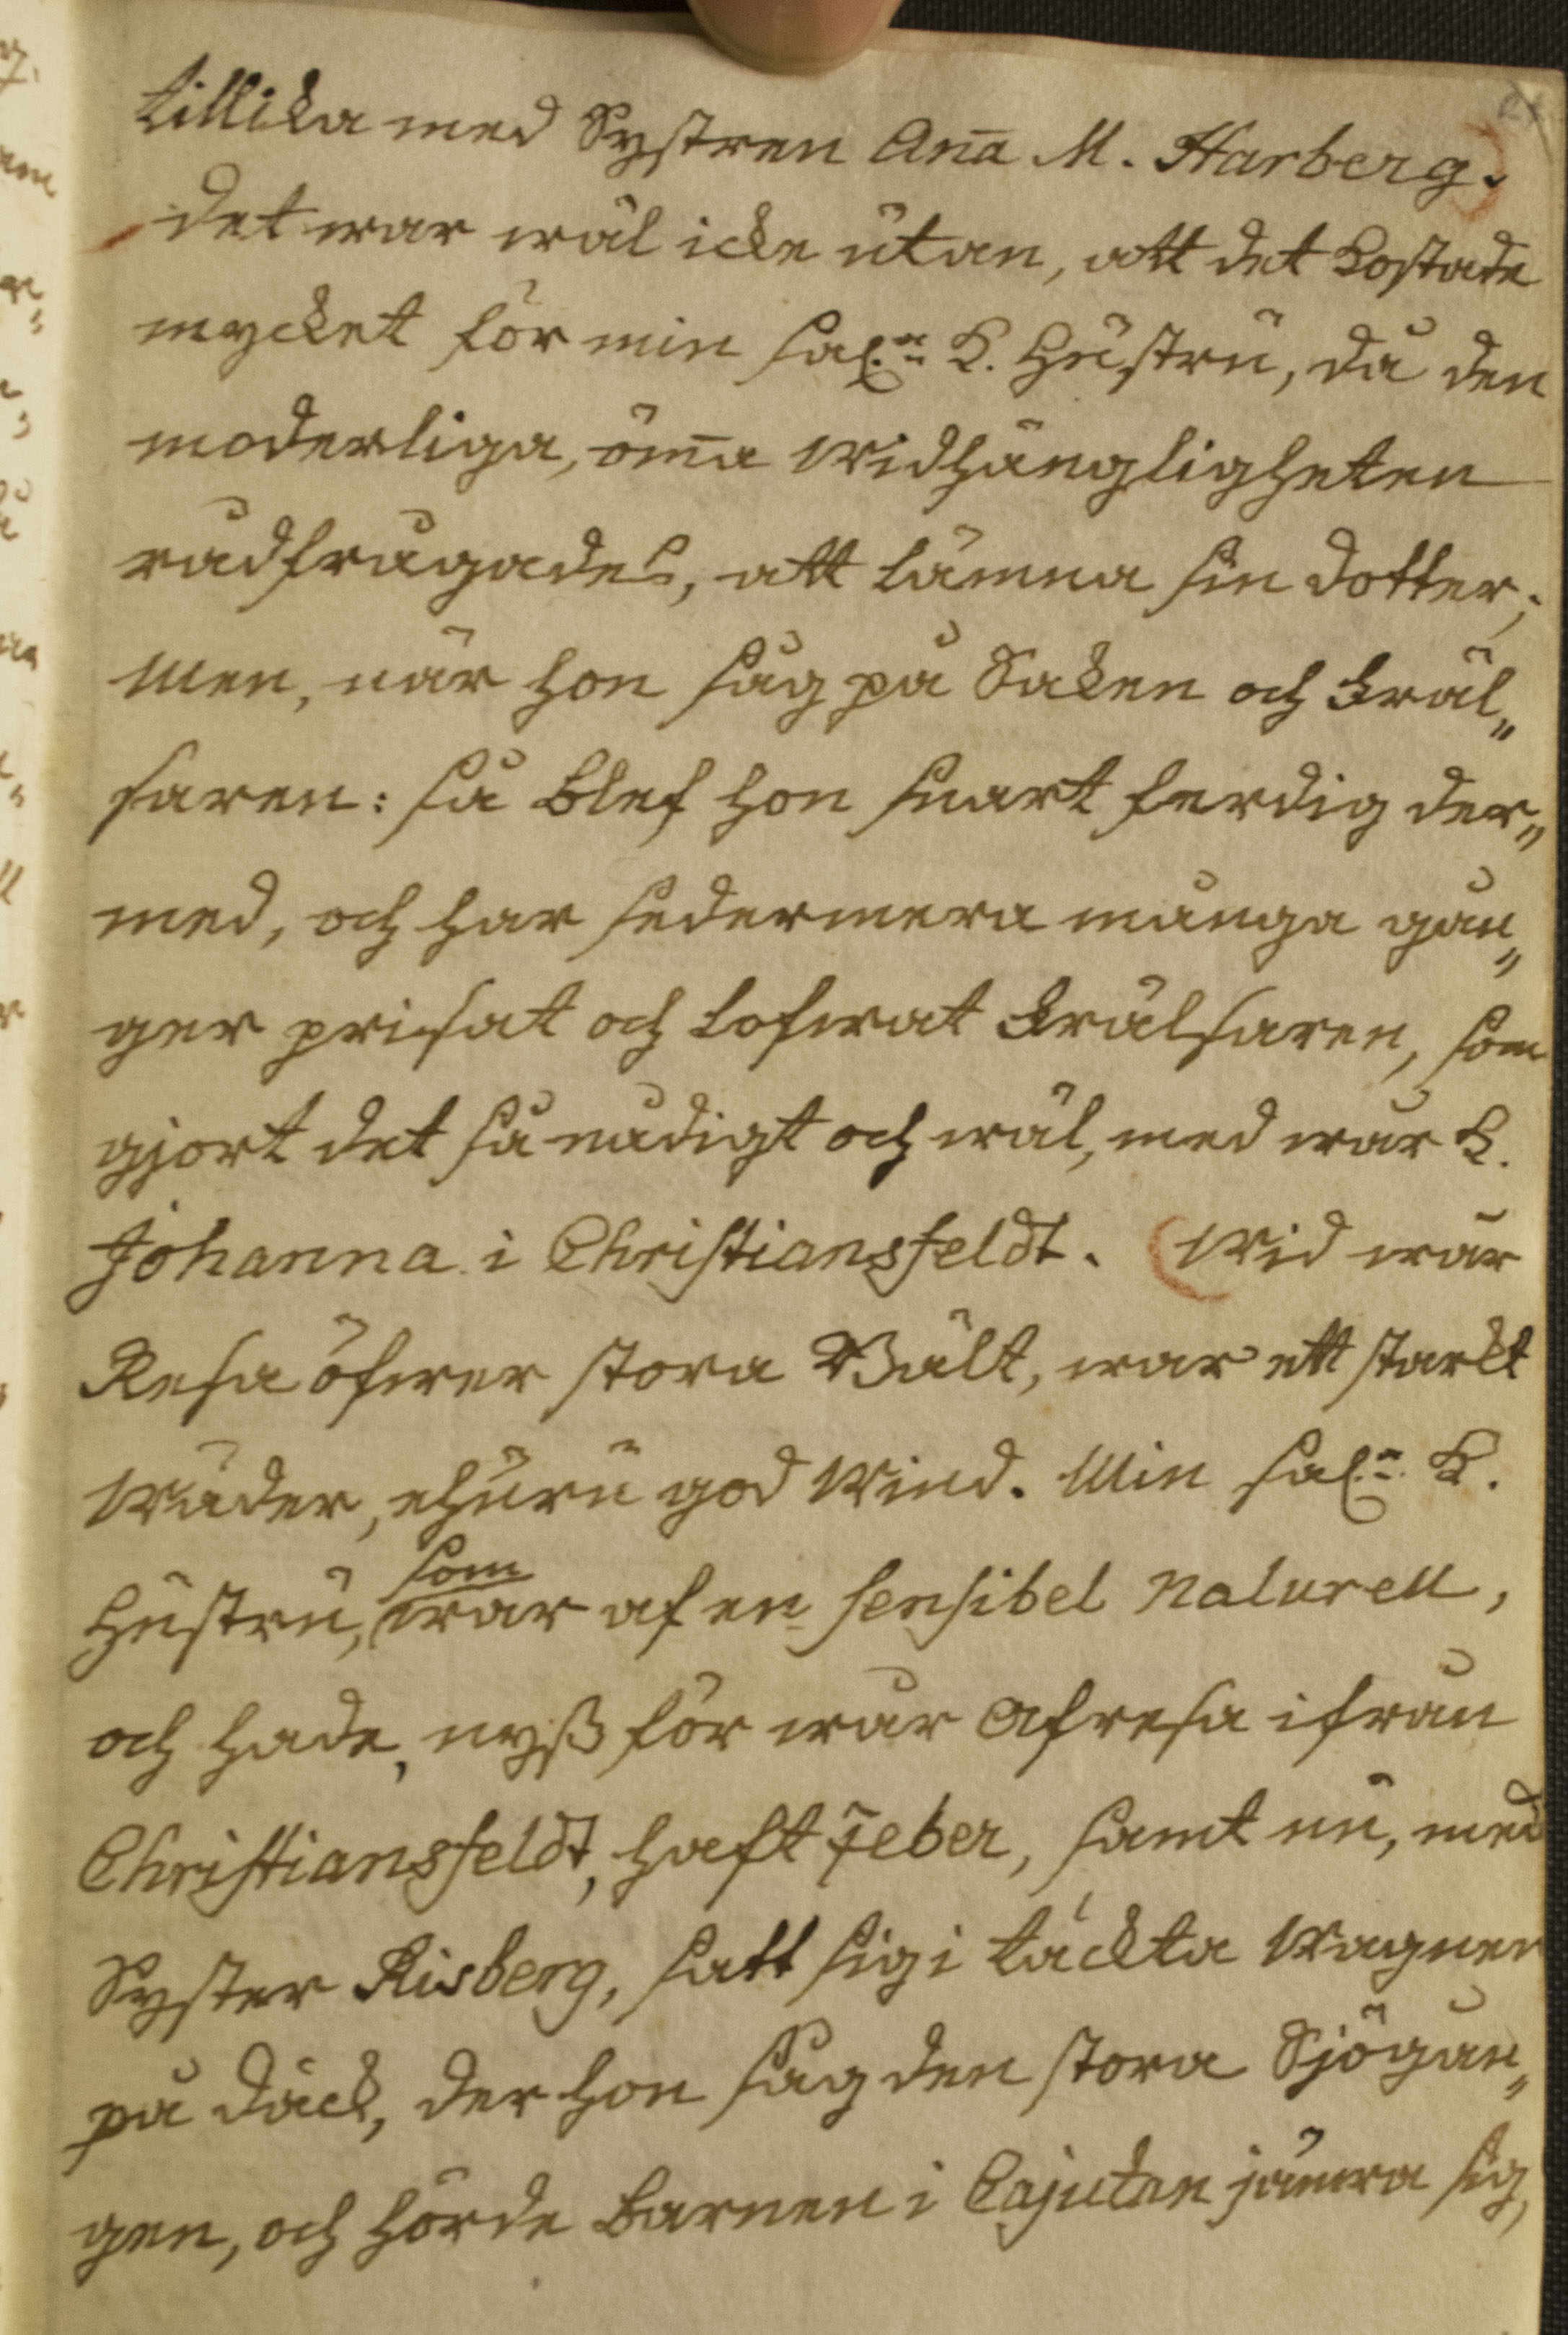 tillika med Systren Ana M. Harberg.
det war wäl icke utan, att det kostade
mycket för min sal:n K. Hustru, då den
moderliga, öm̄a Widhängligheten
rådfrågades, att lämna sin dotter;
Men, när hon såg på Saken och Fräl„
saren: så blef hon snart ferdig der„
med, och har sedermera många gån„
ger prisat och lofwat Frälsaren, som
gjort det så nådigt och wäl, med wår K.
Johanna i Christiansfeldt. (Wid wår
Resa öfwer stora Bält, war ett starkt
Wäder, ehuru god Wind. Min sal:n K.
Hustru, som war af en sensibel naturell,
och hade, nyß för wår Afresa ifrån
Christiansfeldt, haft Feber, samt nu, med
Syster Risberg, satt sig i täckta Wagnen
på däck, der hon såg den stora Sjögån„
gen, och hörde Barnen i Cajutan jämra sig,